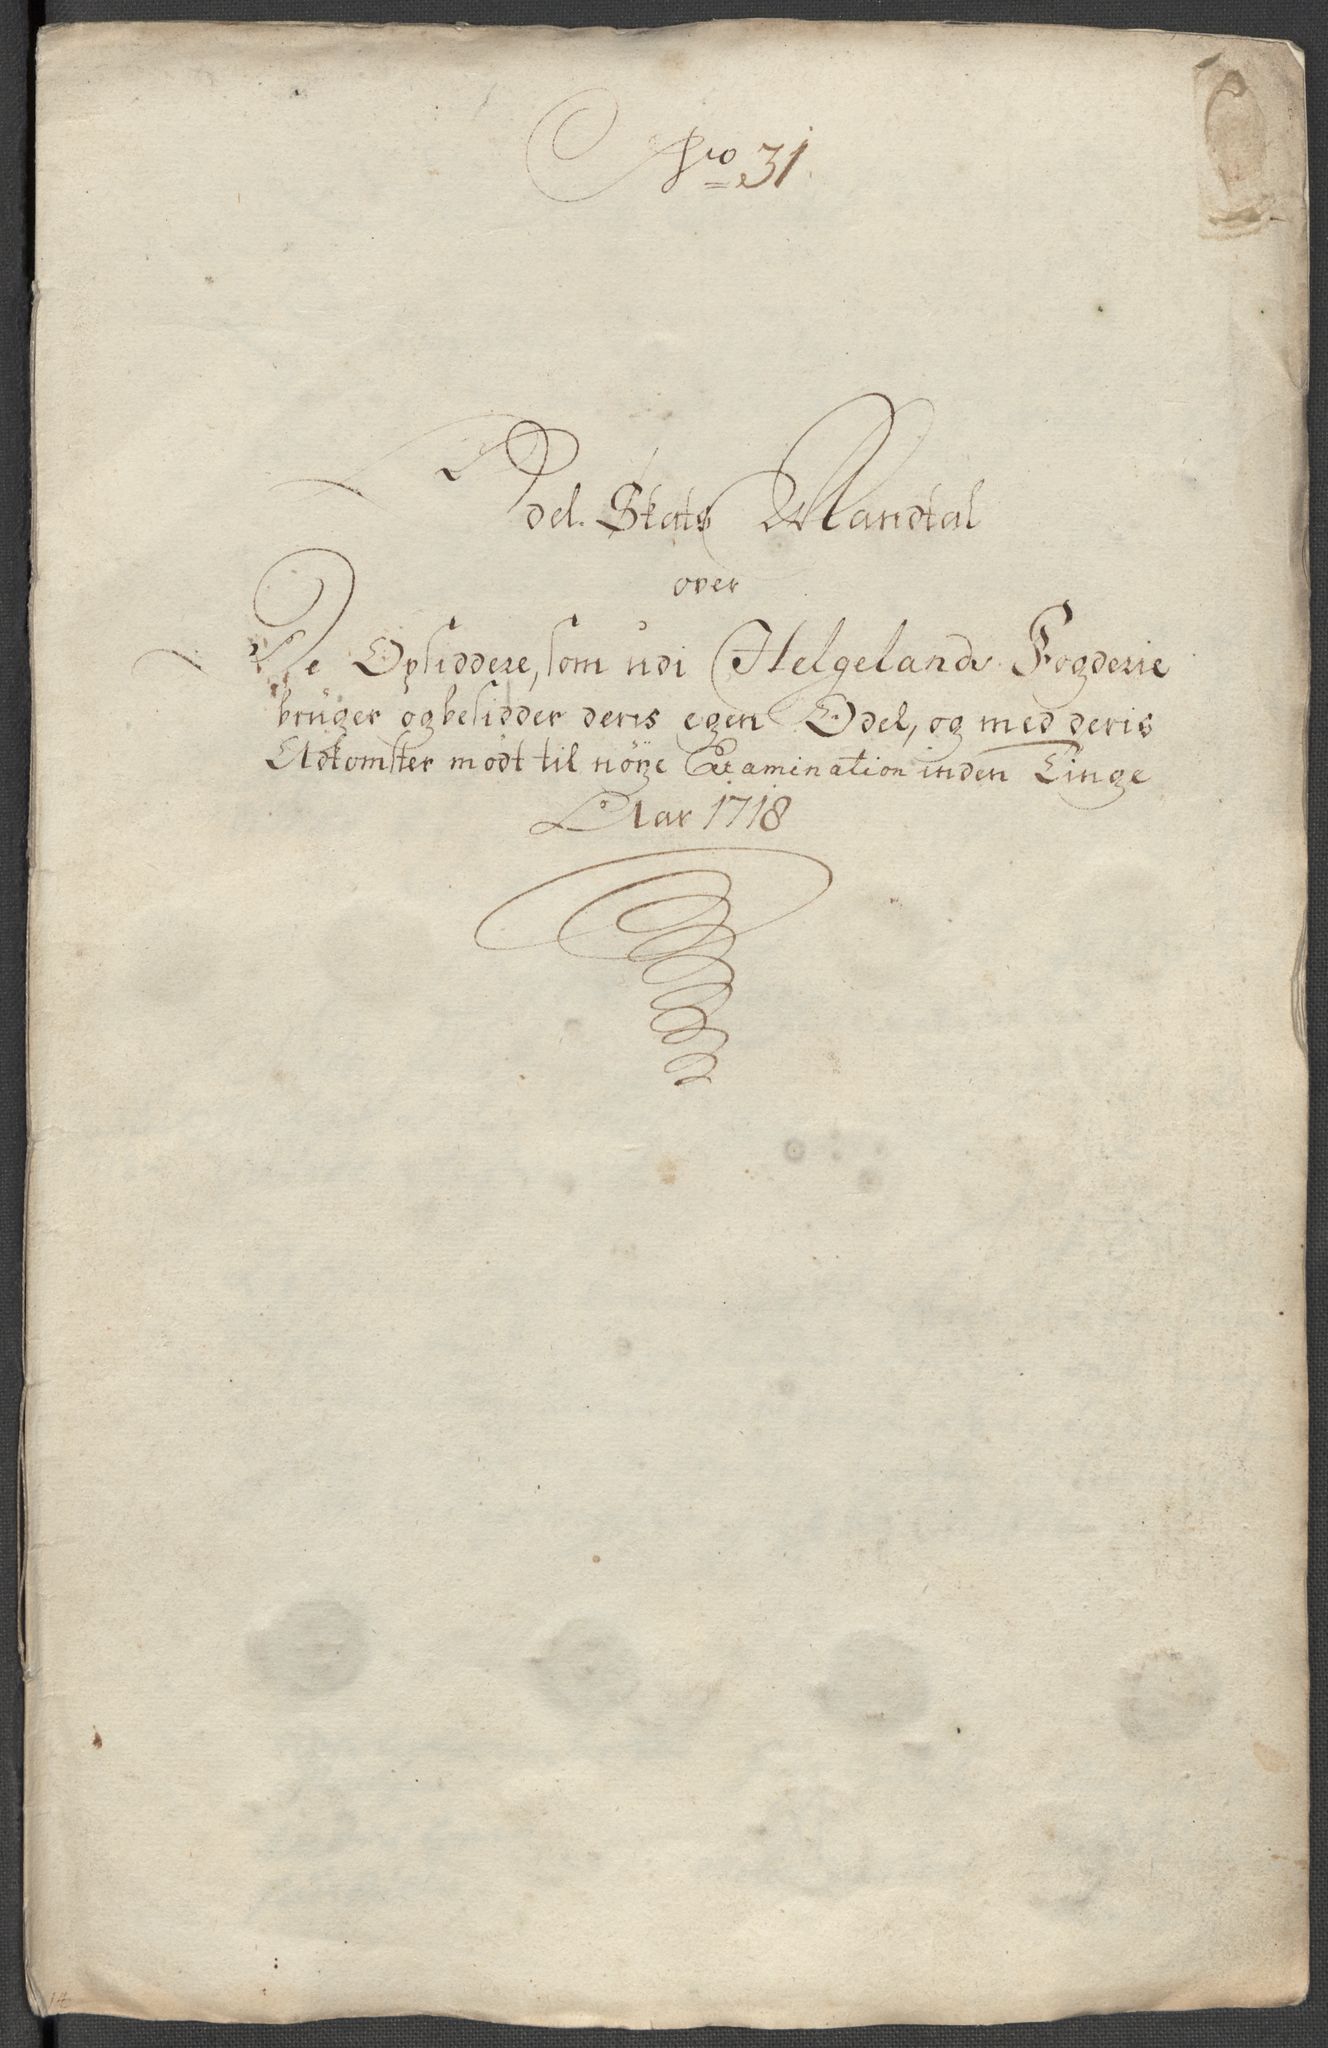 Nro 31
Odel. Skats Mandtal
over
De Opsiddere, som udi Helgelands Fogderie
brüger og besidder deris egen Odel, og med deris
Adkomster mødt til nöÿe Examination inden Tinge
Aar 1718